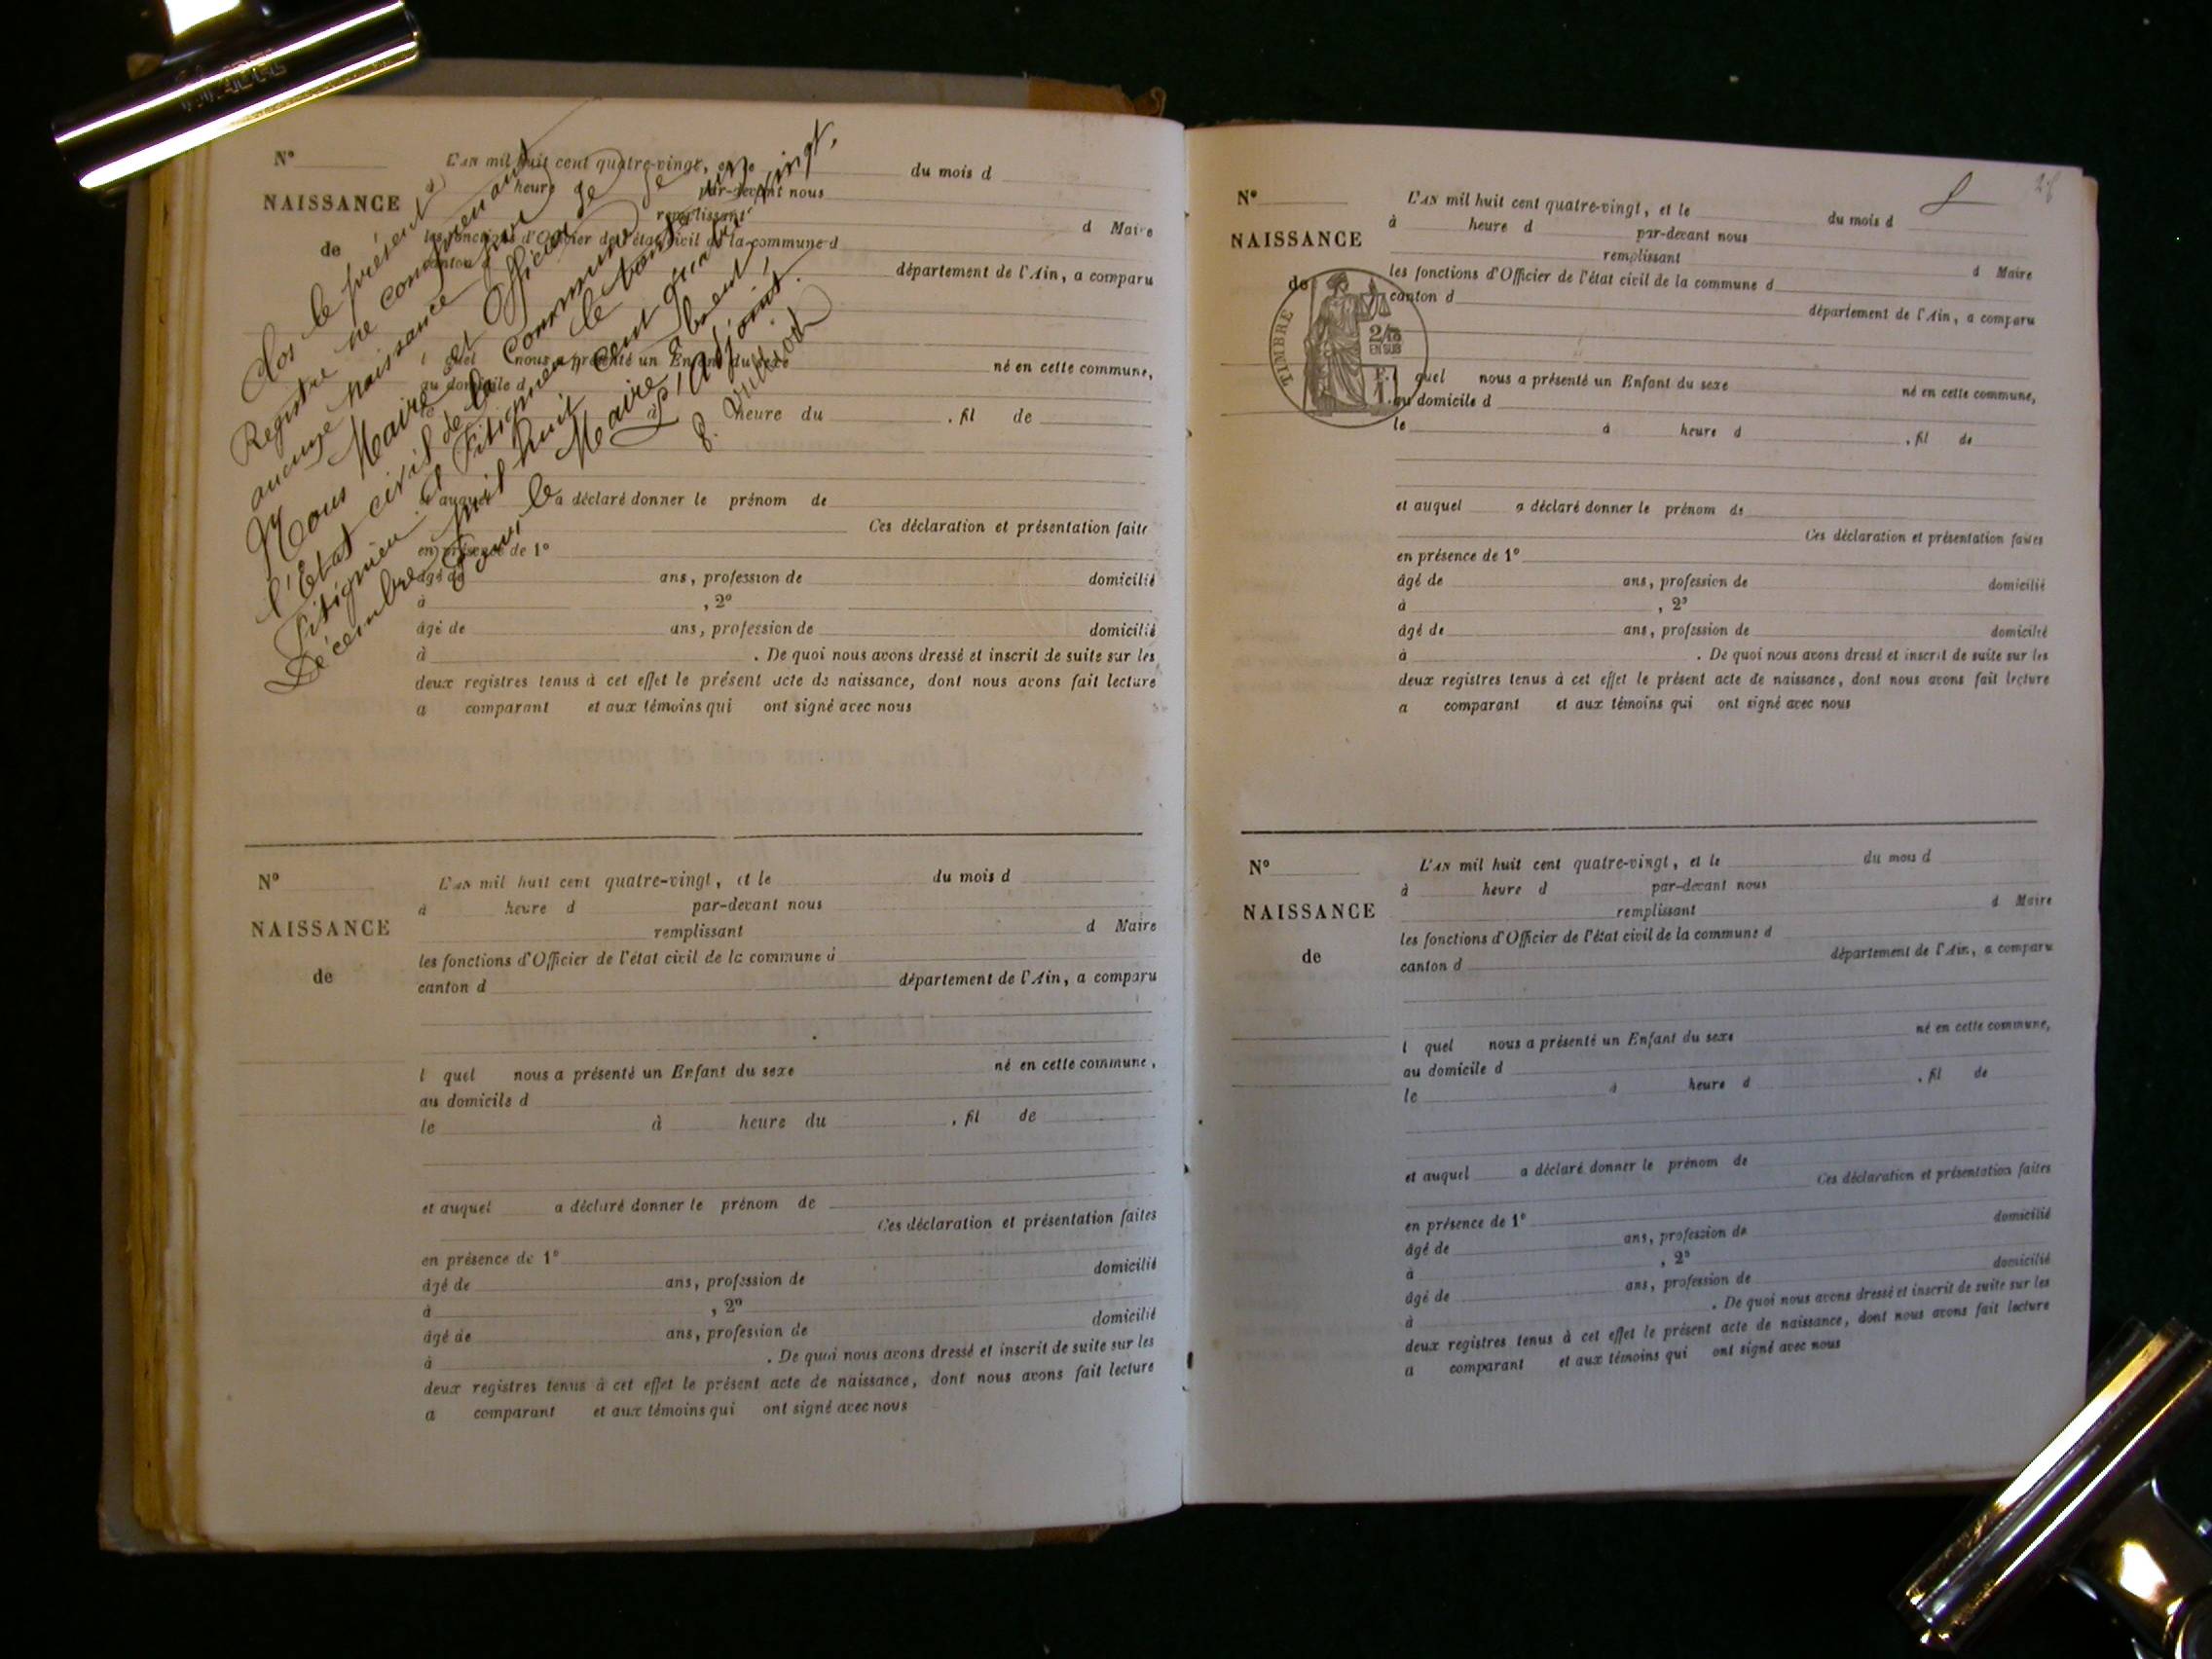 Clos le présent
Registre ne comprenant
aucune naissance par
Nous Maire et Officier de
l'Etat civil de la Commune de
Pisignieu, le trente un
Décembre mil huit cent quatre vingt,
Pour le Maire absent,
L'Adjoint.
N°
NAISSANCE
de
L'AN mil huit cent quatre-vingt, et le du mois d
heure d par-devant nous
remplissant d Maire
les fonctions d'Officier de l'état civil de la commune d
canton d département de l'Ain, a comparu
l quel nous a présenté un Enfant du sexe né en cette commune,
au domicile d
à heure du , fil de
auquel a déclaré donner le prénom de
Ces déclaration et présentation faites
en présence de 1°
âgé de ans, profession de domicilié
à , 2°
âgé de ans, profession de domicilié
à . De quoi nous avons dressé et inscrit de suite sur les
deux registres tenus à cet effet le présent acte de naissance, dont nous avons fait lecture
a comparant et aux témoins qui ont signé avec nous
N°
NAISSANCE
de
L'AN mil huit cent quatre-vingt, et le du mois d
à heure d par-devant nous
remplissant d Maire
les fonctions d'Officier de l'état civil de la commune d
canton d département de l'Ain, a comparu
l quel nous a présenté un Enfant du sexe né en cette commune,
au domicile d
le à heure du , fil de
et auquel a déclaré donner le prénom de
Ces déclaration et présentation faites
en présence de 1°
âgé de ans, profession de domicilié
à , 2°
âgé de ans, profession de domicilié
à . De quoi nous avons dressé et inscrit de suite sur les
deux registres tenus à cet effet le présent acte de naissance, dont nous avons fait lecture
a comparant et aux témoins qui ont signé avec nous
N°
NAISSANCE
de
TIMBRE
2/10
EN SUS
L'AN mil huit cent quatre-vingt, et le du mois d
à heure d par-devant nous
remplissant d Maire
les fonctions d'Officier de l'état civil de la commune d
canton d département de l'Ain, a comparu
quel nous a présenté un Enfant du sexe né en cette commune,
au domicile d
le à heure d , fil de
et auquel a déclaré donner le prénom de
Ces déclaration et présentation faites
en présence de 1°
âgé de ans, profession de domicilié
à , 2°
âgé de ans, profession de domicilié
à . De quoi nous avons dressé et inscrit de suite sur les
deux registres tenus à cet effet le présent acte de naissance, dont nous avons fait lecture
a comparant et aux témoins qui ont signé avec nous
N°
NAISSANCE
de
L'AN mil huit cent quatre-vingt, et le du mois d
à heure d par-devant nous
remplissant d Maire
les fonctions d'Officier de l'état civil de la commune d
canton d département de l'Ain, a comparu
l quel nous a présenté un Enfant du sexe né en cette commune,
au domicile d
le à heure d , fil de
et auquel a déclaré donner le prénom de
Ces déclaration et présentation faites
en présence de 1°
âgé de ans, profession de domicilié
à , 2°
âgé de ans, profession de domicilié
à . De quoi nous avons dressé et inscrit de suite sur les
deux registres tenus à cet effet le présent acte de naissance, dont nous avons fait lecture
a comparant et aux témoins qui ont signé avec nous